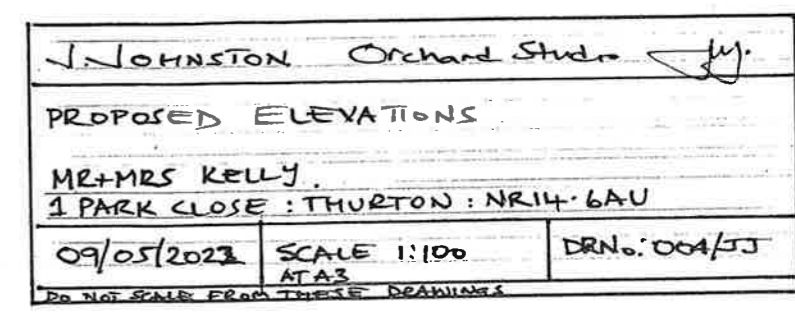 J. JOHNSTON Orchard Studio
PROPOSED ELEVATIONS
MR+MRS KELLY.
1 PARK CLOSE : THURTON : NR14.6AU
09/05/2023 SCALE 1:100 DRNo: 004/JJ
AT A3
DO NOT SCALE FROM THESE DRAWINGS